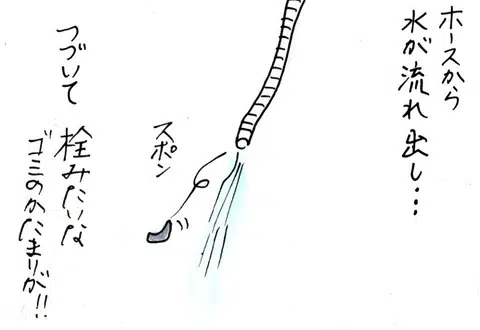 ホースから
水が流れ出し…
スポン
つづいて
栓みたいな
ゴミのかたまりが!!